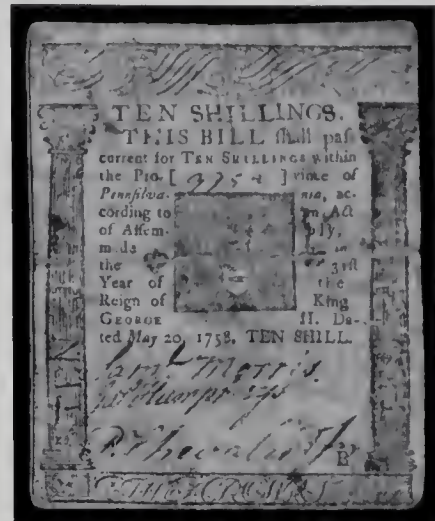 TEN SHILLINGS.
THIS BILL ſhall paſs
current for TEN SHILLINGS within
the Pro- [ 3752 ] vince of
Pennſilva- nia, ac-
cording to an Act
of Aſſem- bly,
made in
the 31ſt
Year of the
Reign of King
GEORGE II. Da-
ted May 20, 1758. TEN SHILL.
Saml Morris
P. Chevalier
B
TEN